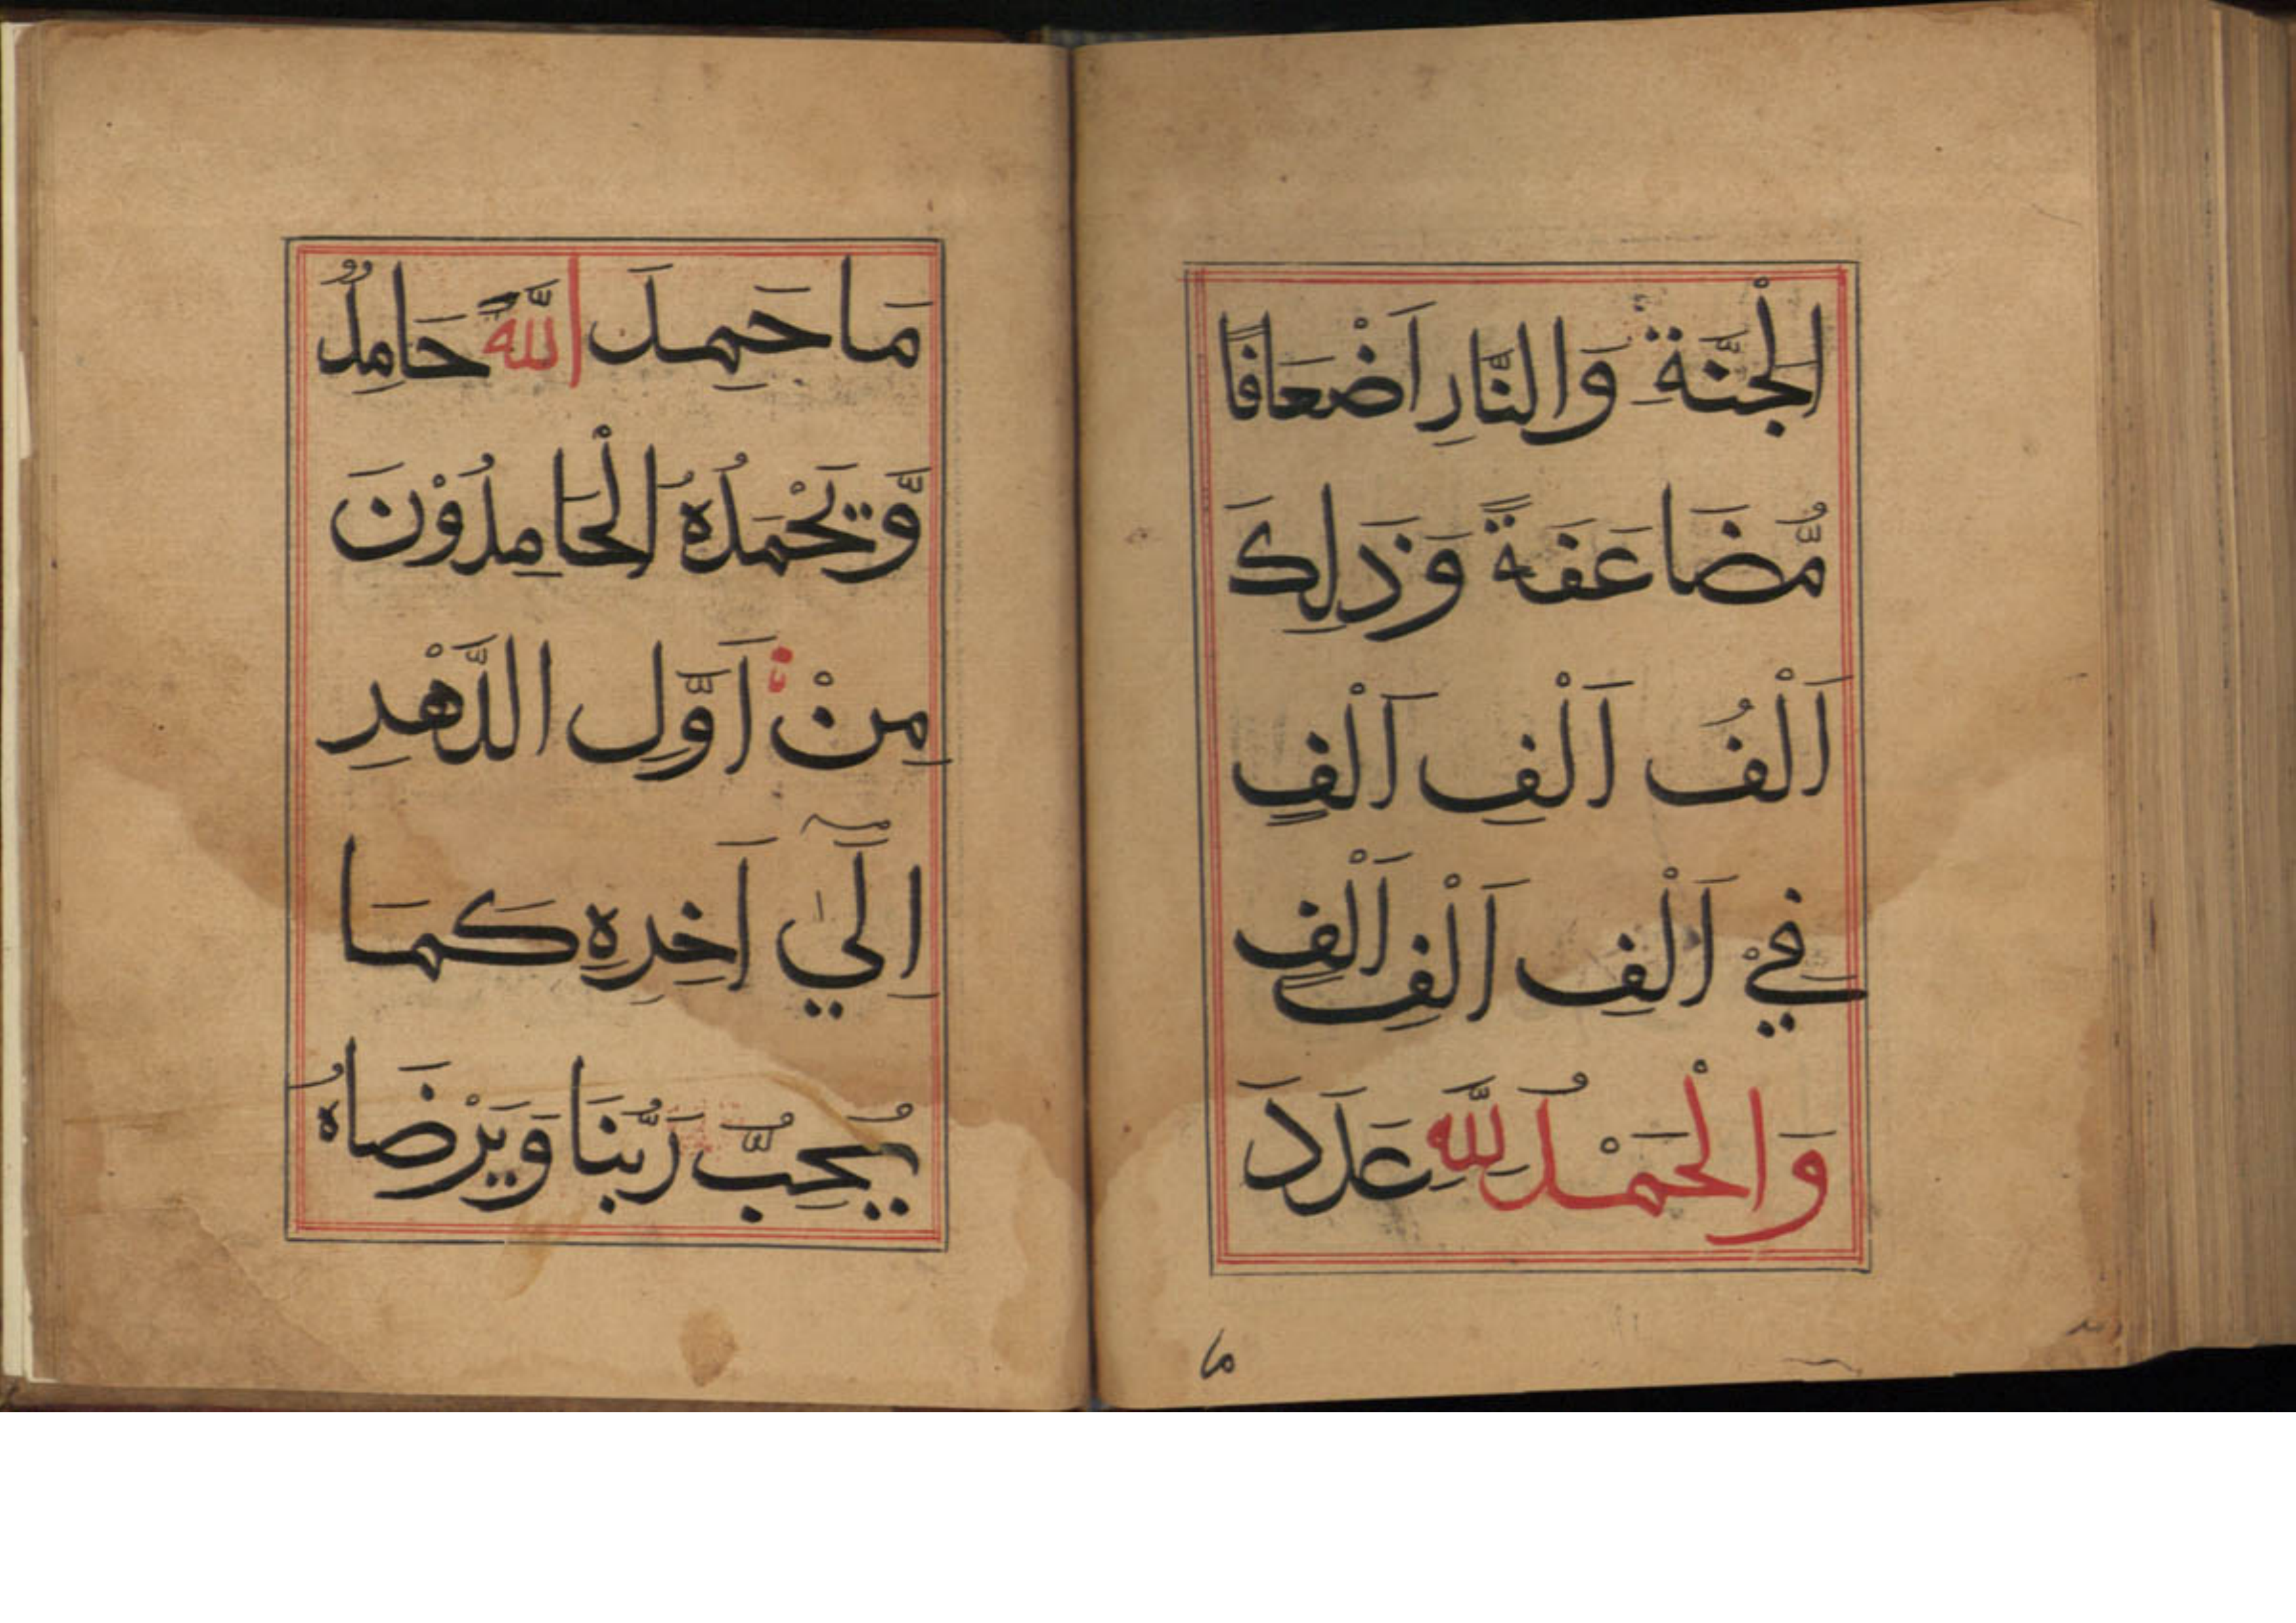 الْجَنَّةِ وَالنَّارِ اَضْعَافًا
مُّضَاعَفَةً وَذَلِكَ
اَلْفُ اَلْفِ اَلْفٍ
فِيْ اَلْفِ اَلْفِ اَلْفٍ
وَالْحَمْدُ لِلّٰهِ عَدَدَ
ما
مَا حَمِدَ اللّٰهَ حَامِدٌ
وَّيَحْمَدُهُ الْحَامِدُوْنَ
مِنْ اَوَّلِ الدَّهْرِ
اِلٰيٓ اَخِرِهِ كَمَا
يُحِبُّ رَبُّنَا وَيَرْضَاهُ